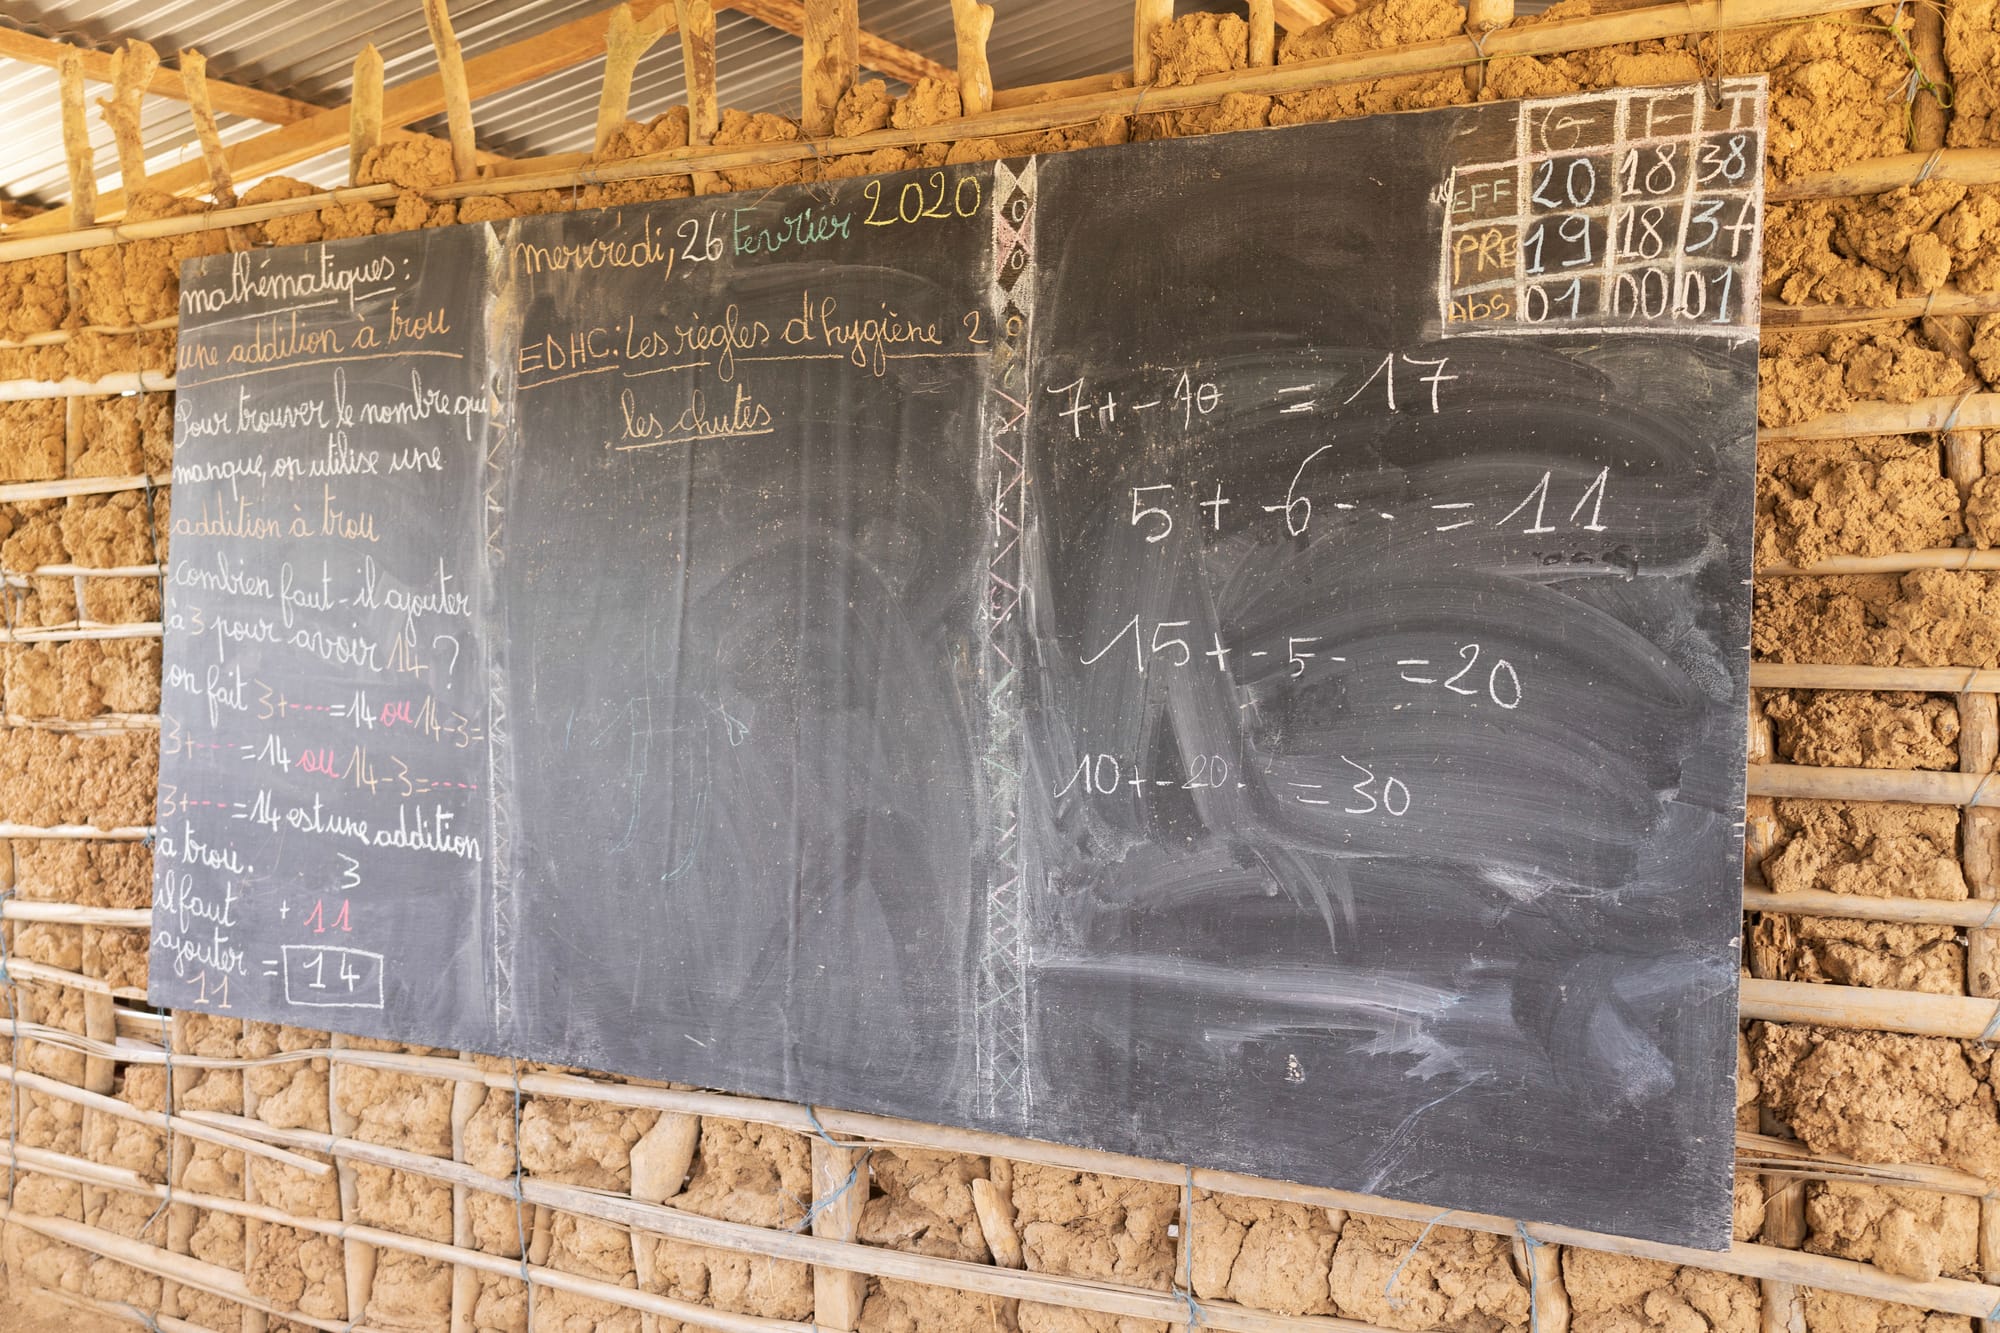 mathématiques:
une addition à trou
Pour trouver le nombre qui
manque, on utilise une
addition à trou
Combien faut-il ajouter
à 3 pour avoir 14 ?
on fait 3+----=14 ou 14-3=
3+---- =14 ou 14-3=----
3+---- =14 est une addition
à trou.
il faut
ajouter
11
3
+ 11
= 14
mercredi, 26 Fevrier 2020
EDHC: Les règles d'hygiène 2
les chutes
G F T
EFF 20 18 38
PRE 19 18 37
Abs 01 00 01
7+-10 = 17
5 + -6-- = 11
15+-5- =20
10+-20. =30